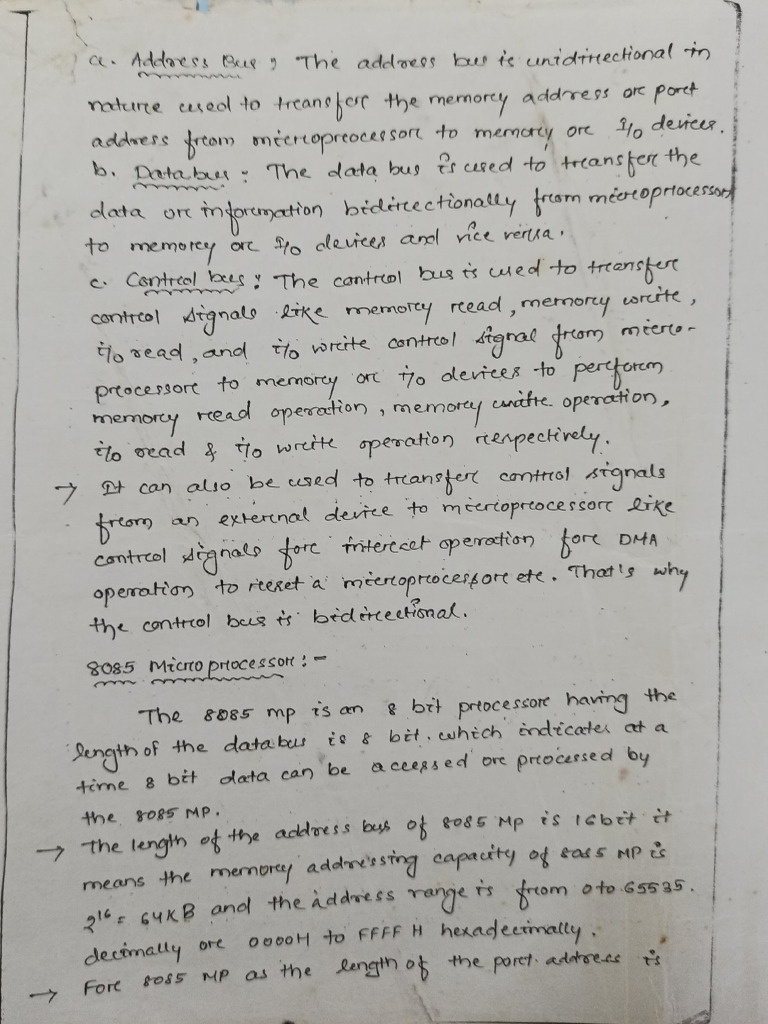 a. Address Bus : The address bus is unidirectional in
nature used to transfer the memory address or port
address from microprocessor to memory or I/O devices.
b. Data bus : The data bus is used to transfer the
data or information bidirectionally from microprocessor
to memory or I/O devices and vice versa.
c. Control bus : The control bus is used to transfer
control signals like memory read, memory write,
i/o read, and i/o write control signal from micro-
processor to memory or i/o devices to perform
memory read operation, memory write operation,
i/o read & i/o write operation respectively.
→ It can also be used to transfer control signals
from an external device to microprocessor like
control signals for operation for DMA
operation to reset a microprocessor etc. That's why
the control bus is bidirectional.
8085 Microprocessor :-
The 8085 mp is an 8 bit processor having the
length of the databus is 8 bit. which indicates at a
time 8 bit data can be accessed or processed by
the 8085 MP.
→ The length of the address bus of 8085 MP is 16bit it
means the memory addressing capacity of 8085 MP is
2^16 = 64KB and the address range is from 0 to 65535.
decimally or 0000H to FFFF H hexadecimally.
→ For 8085 MP as the length of the port address is